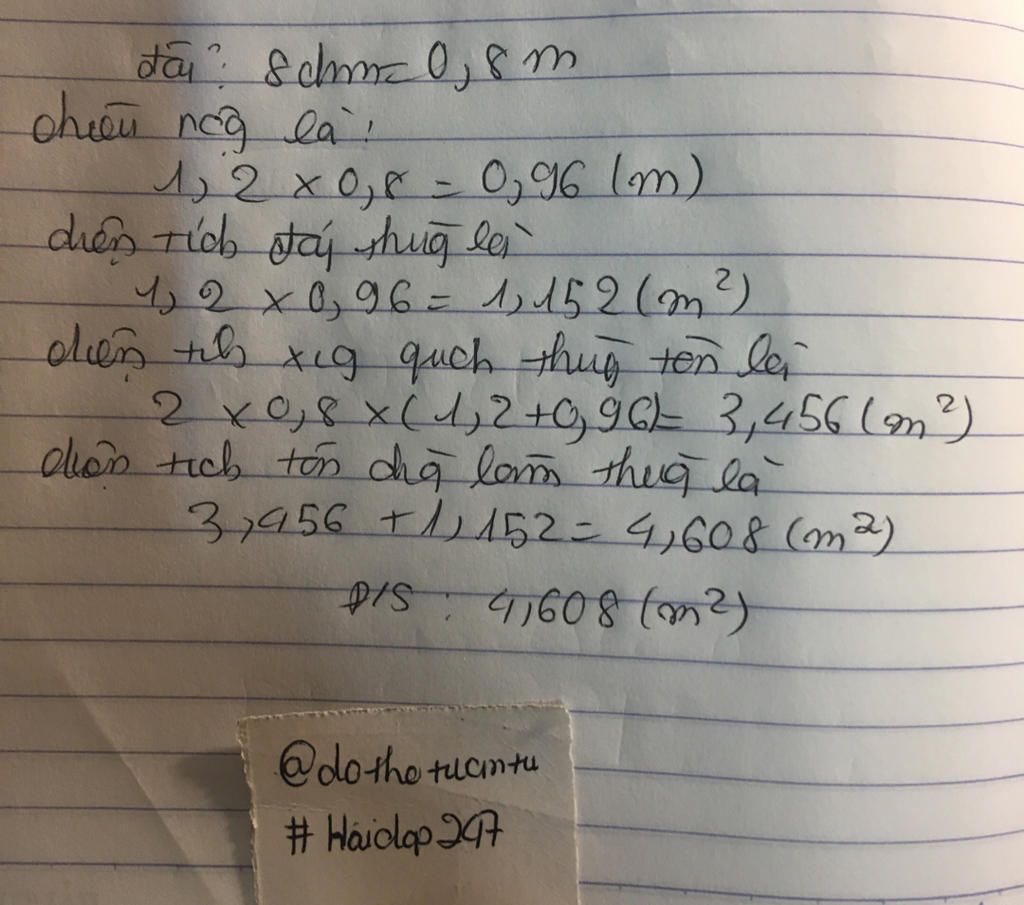 đổi: 8dm = 0,8 m
chiều rộng là:
1,2 × 0,8 = 0,96 (m)
diện tích đáy thùng là
1,2 × 0,96 = 1,152 (m²)
diện tích xq quah thùng tôn là
2 × 0,8 × (1,2+0,96) = 3,456 (m²)
diện tích tôn để làm thùng là
3,456 + 1,152 = 4,608 (m²)
Đ/S : 4,608 (m²)
@dothotuantu
#Hoidap247